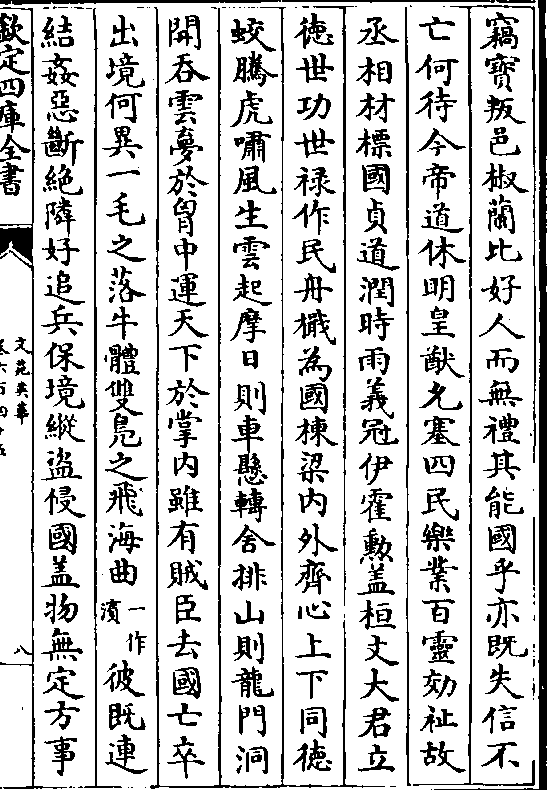 竊寳叛邑椒蘭比好人而無禮其能國乎亦既失信不
亡何待今帝道休明皇猷允塞四民樂業百靈効祉故
丞相材標國貞道潤時雨義冠伊霍勲蓋桓文大君立
徳世功世禄作民舟檝為國棟梁内外齊心上下同徳
蛟騰虎嘯風生雲起摩日則車懸轉舍排山則龍門洞
開吞雲夢於胷中運天下於掌内雖有賊臣去國亡卒
出境何異一毛之落牛體雙鳧之飛海曲一作濱彼既連
結姦惡斷絶隣好追兵保境縱盜侵國蓋物無定方事
欽定四庫全書
文苑英華
卷六百四十五
八